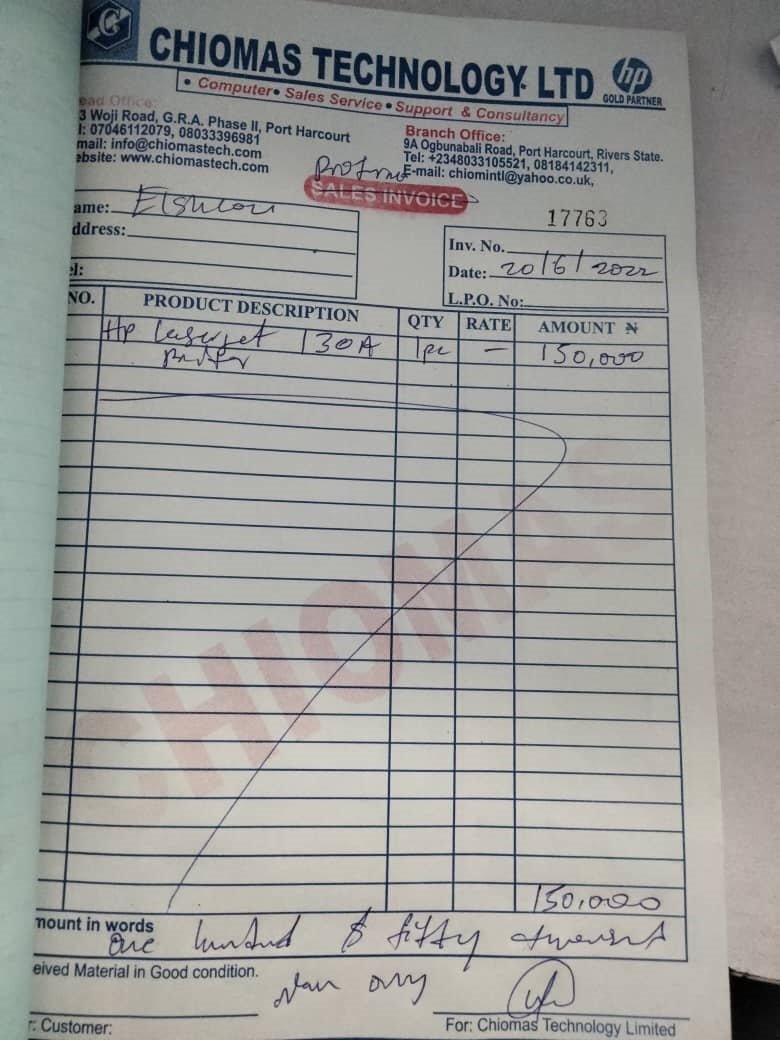 CHIOMAS TECHNOLOGY LTD
hp
GOLD PARTNER
• Computer • Sales Service • Support & Consultancy
ead Office:
3 Woji Road, G.R.A. Phase II, Port Harcourt
l: 07046112079, 08033396981
mail: info@chiomastech.com
ebsite: www.chiomastech.com
Branch Office:
9A Ogbunabali Road, Port Harcourt, Rivers State.
Tel: +2348033105521, 08184142311,
E-mail: chiomintl@yahoo.co.uk,
SALES INVOICE
17763
ame:
ddress:
el:
Inv. No.
Date: 20/6/2022
L.P.O. No:
NO. PRODUCT DESCRIPTION QTY RATE AMOUNT N
Hp Laserjet 130A 1pc – 150,000
Printer
CHIOMAS
150,000
mount in words
One hundred & fifty thousand
Naira only
eived Material in Good condition.
r: Customer:
For: Chiomas Technology Limited